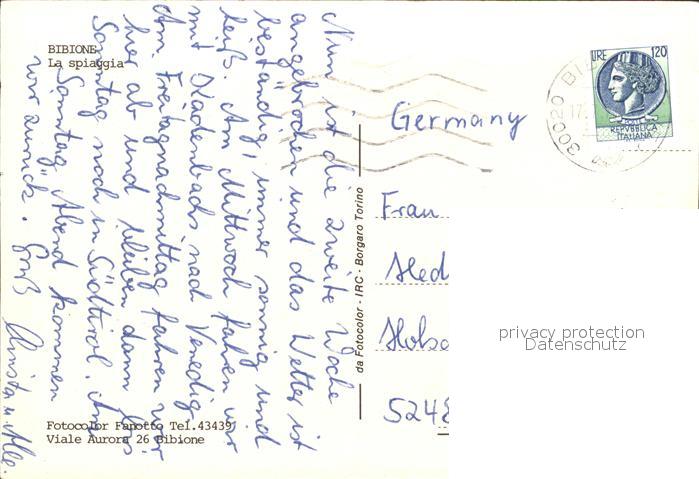 BIBIONE
La spiaggia
Nun ist die zweite Woche
angebrochen und das Wetter ist
beständig, immer sonnig und
heiß. Am Mittwoch fahren wir
mit nach Venedig
Am Freitagnachmittag fahren wir
hier ab und bleiben dann bis
Sonntag noch in Südtirol. Am
Sonntag Abend kommen
wir zurück. Gruß
Fotocolor Fanotto Tel.43439
Viale Aurora 26 Bibione
da Fotocolor - IRC - Borgaro Torino
LIRE 120
REPVBBLICA
ITALIANA
30020 BI
17.
Germany
Frau
Hed
5248
privacy protection
Datenschutz